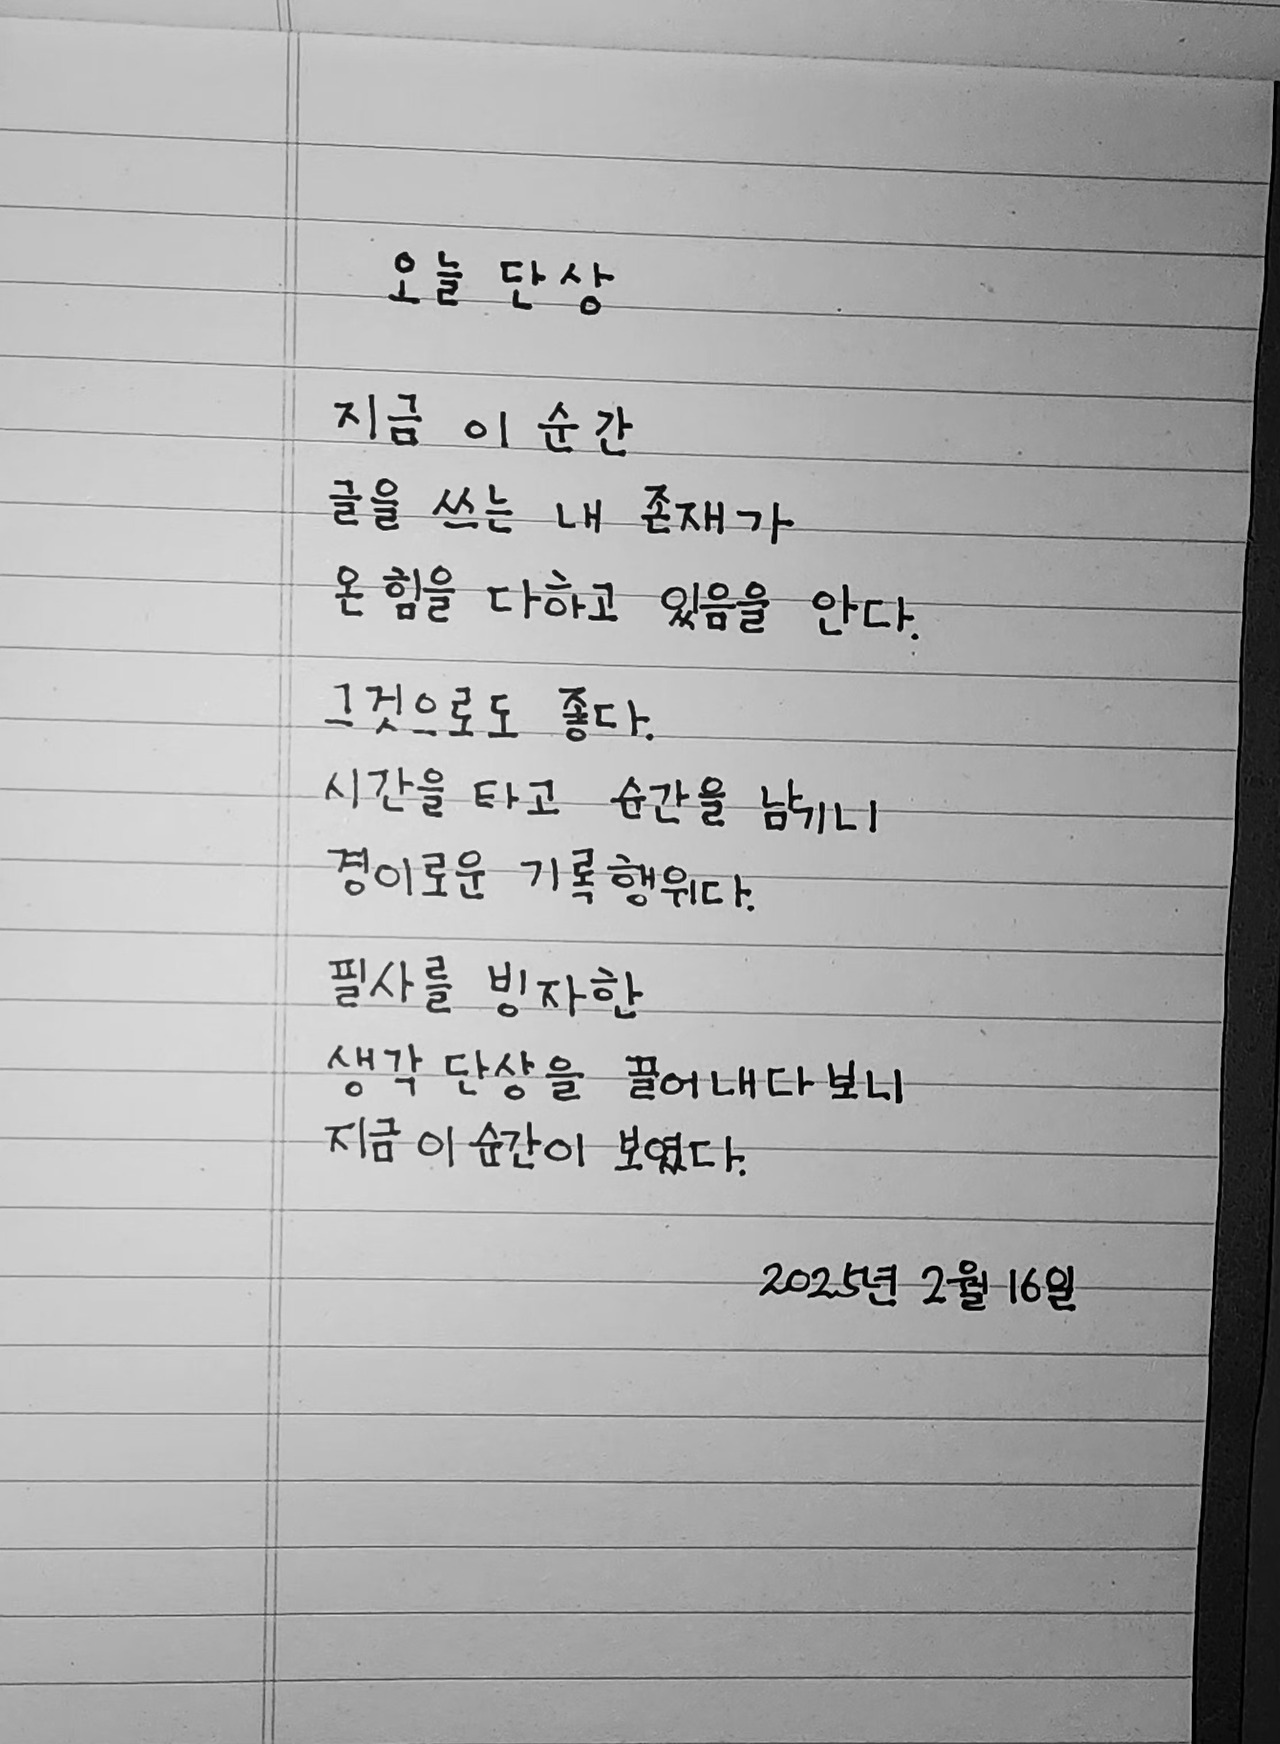 오늘 단상
지금 이 순간
글을 쓰는 내 존재가
온 힘을 다하고 있음을 안다.
그것으로도 좋다.
시간을 타고 순간을 남기니
경이로운 기록행위다.
필사를 빙자한
생각 단상을 끌어내다보니
지금 이 순간이 보였다.
2025년 2월 16일